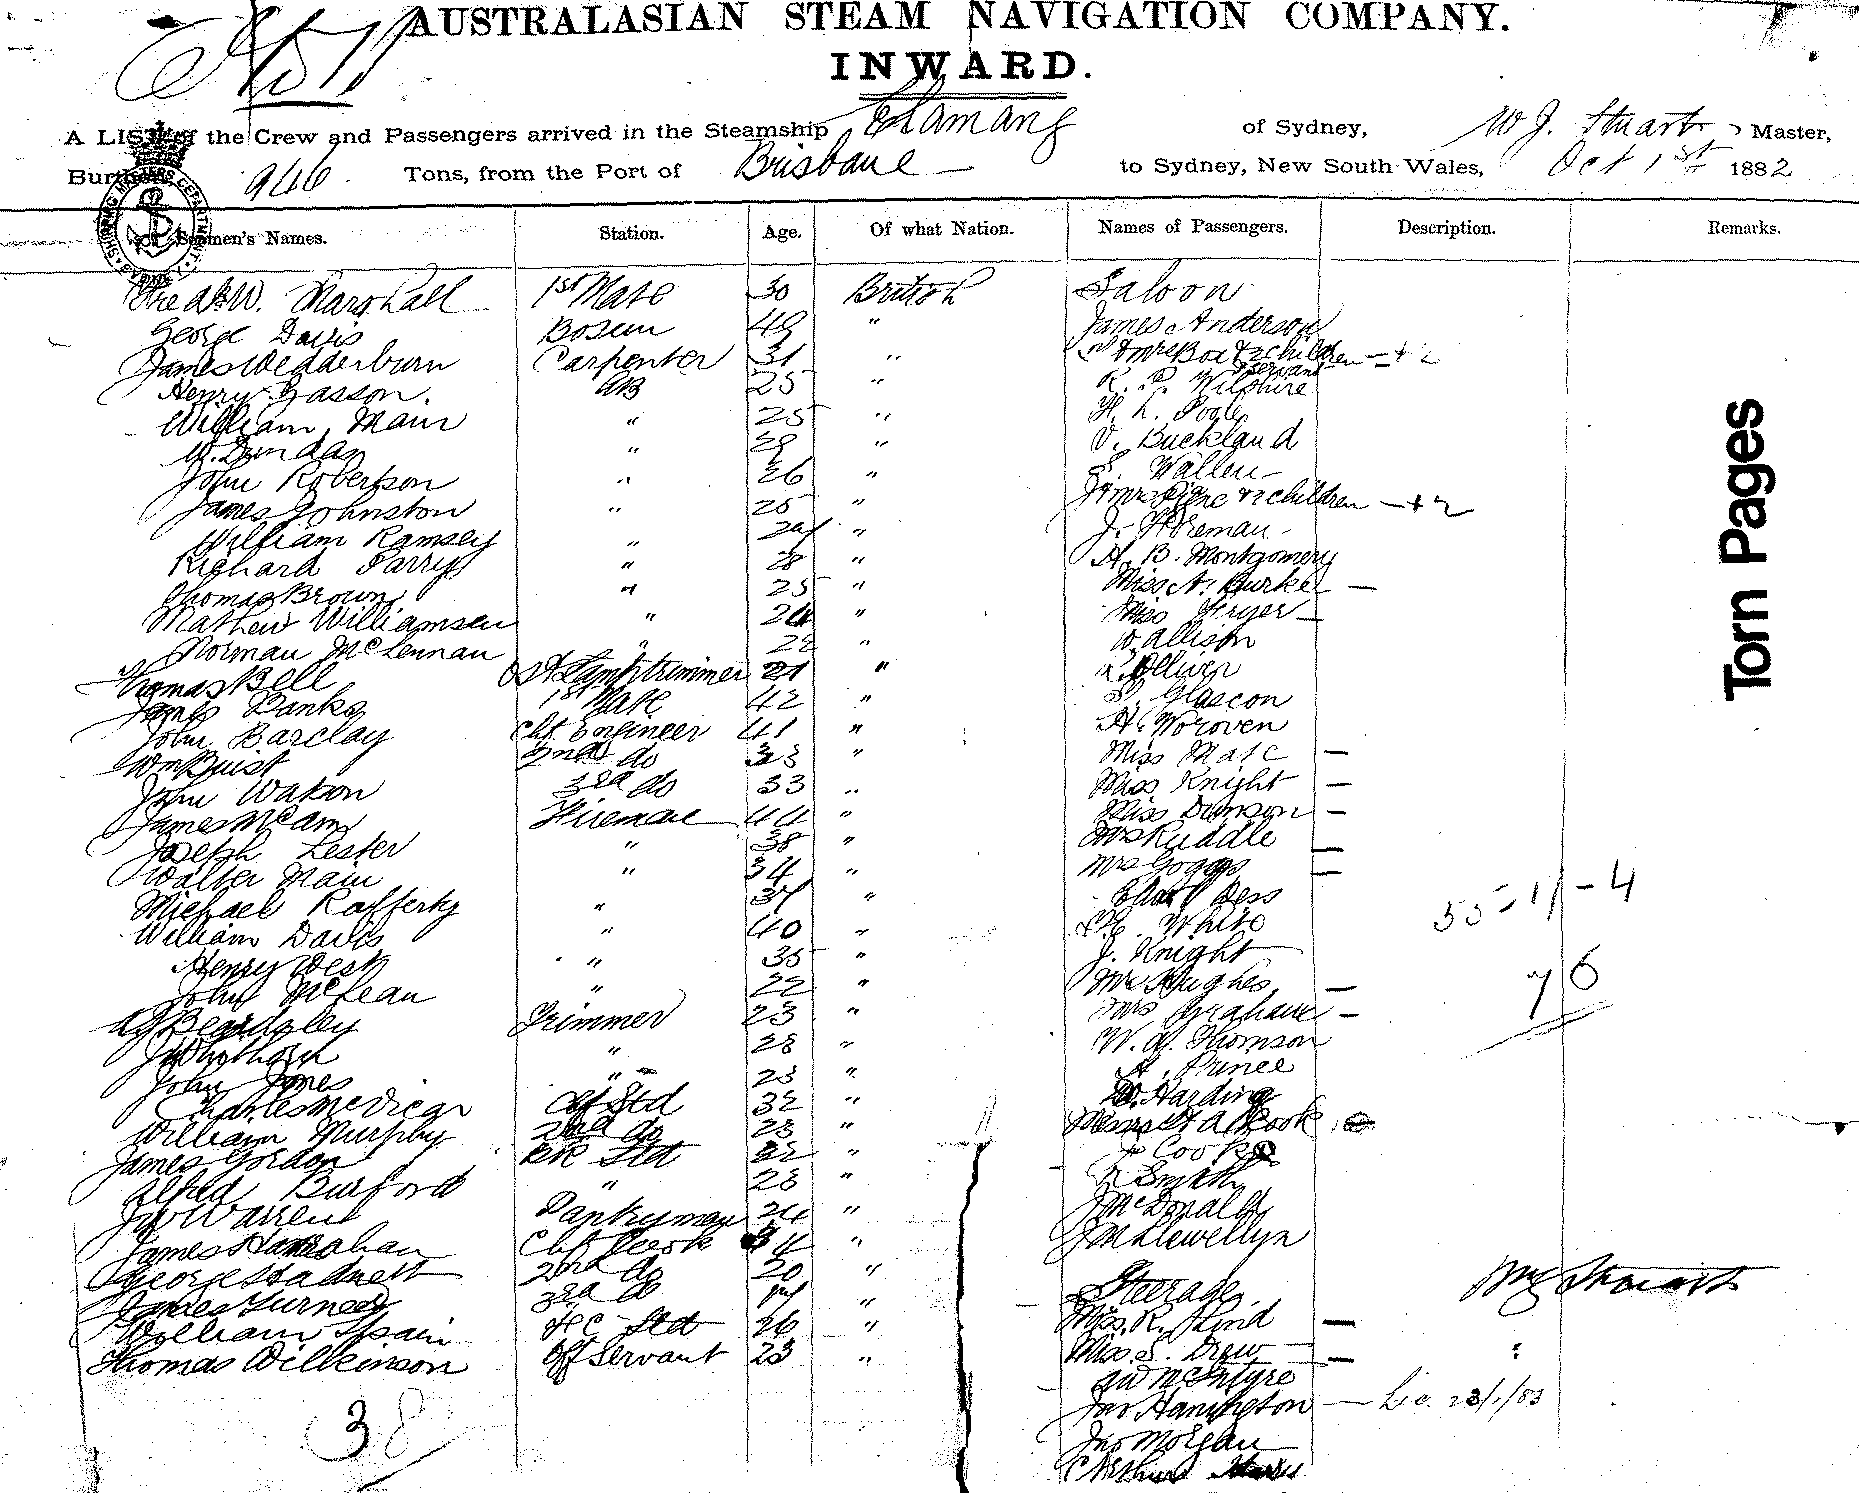 AUSTRALASIAN STEAM NAVIGATION COMPANY.
INWARD.
A LIST of the Crew and Passengers arrived in the Steamship Elamang of Sydney, W J. Stuart, Master,
Burthen 946 Tons, from the Port of Brisbane to Sydney, New South Wales, Oct 1st 1882
Seamen's Names. Station. Age. Of what Nation. Names of Passengers. Description. Remarks.
W. Marshall 1st Mate 30 British Saloon
George Davis Bosun 49 " James Anderson
James Wedderburn Carpenter 31 " & Mrs Box & 2 children — + 2
servant
Henry Gasson. AB 25 " R. P. Wilshire
William Main " 25 " H. L. Pogle
W. Dundas " 29 " V. Buckland
John Robertson " 26 " S. Wallen
James Johnston " 25 " & Mrs & 2 children — + 2
William Ramsey " 24 " J. Foreman
Richard Parry " 28 " H. B. Montgomery
Thomas Brown " 25 " Miss A. Burke —
Mathew Williamsen " 24 " Miss Fryer —
Norman McLennan " 22 " W. Allison
Thomas Bell Lamptrimmer 21 " Olliver
James Banks 1st Mate 42 " Glascon
John Barclay Chf. Engineer 41 " H. Woroven
Wm Buist 2nd do 33 " Miss Mate —
John Watson 3rd do 33 " Miss Knight —
James McCam Fireman 44 " Miss Dunson —
Joseph Lester " 38 " Mrs Ruddle —
Walter Main " 34 " Mrs Goggs —
Michael Rafferty " 37 " Bess
William Davis " 40 " White
Henry West " 35 " J. Knight
John McLean " 22 " Mrs Hughes —
Beardsley Trimmer 23 " Mrs Grahame —
" 28 " W. Thomson
John Jones " 23 " A. Prince
Charles McVicar Chf Std 32 " W. Harding
William Murphy 2nd do 23 " Cook
James Gordon Std 22 " Cook
Alfred Burford " 23 " Smyth
J W Warren Pantryman 24 " J McDonald
James Hanrahan Chf Cook 34 " J M Llewellyn
George Hadnett 2nd do 20 "
James Turner 3rd do 17 " Steerage
William Spain FC Std 26 " Miss R. Hind —
Thomas Wilkinson Off Servant 23 " Miss S. Drew —
McIntyre
Jno Harrington — Lic. 23/1/83
Jno Morgan
38
55 - 17 - 4
76
Wm J Stuart
Torn Pages